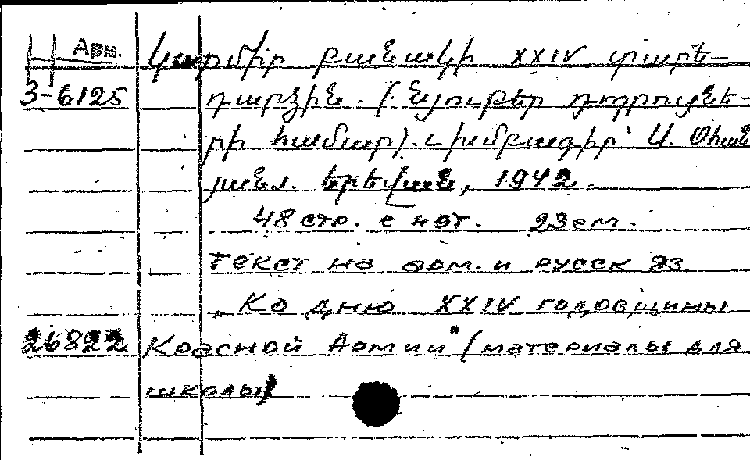 Арм. Կարմիր բանակի XXIV տարե-
3-6125 դարձին. (Նյութեր դպրոցնե-
րի համար). Խմբագիր՝ Ա. Օհան
յան. Երևան, 1942.
48 стр. с нот. 23 см.
Текст на арм. и русск яз.
„Ко дню XXIV годовщины
26822 Красной Армии" (материалы для
школы)